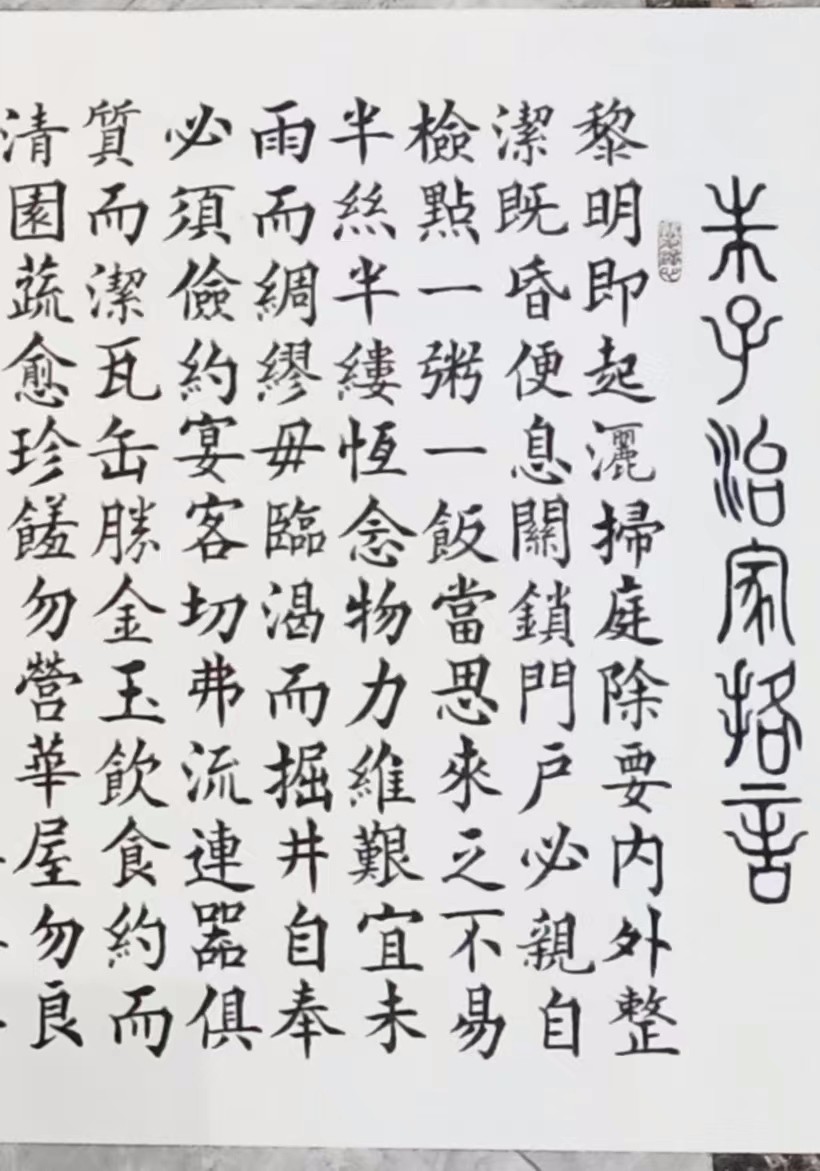 朱子治家格言
黎明即起灑掃庭除要内外整
潔既昏便息關鎖門户必親自
檢點一粥一飯當思來之不易
半絲半縷恆念物力維艱宜未
雨而綢繆毋臨渴而掘井自奉
必須儉約宴客切弗流連器俱
質而潔瓦缶勝金玉飲食約而
清園蔬愈珍饈勿營華屋勿良